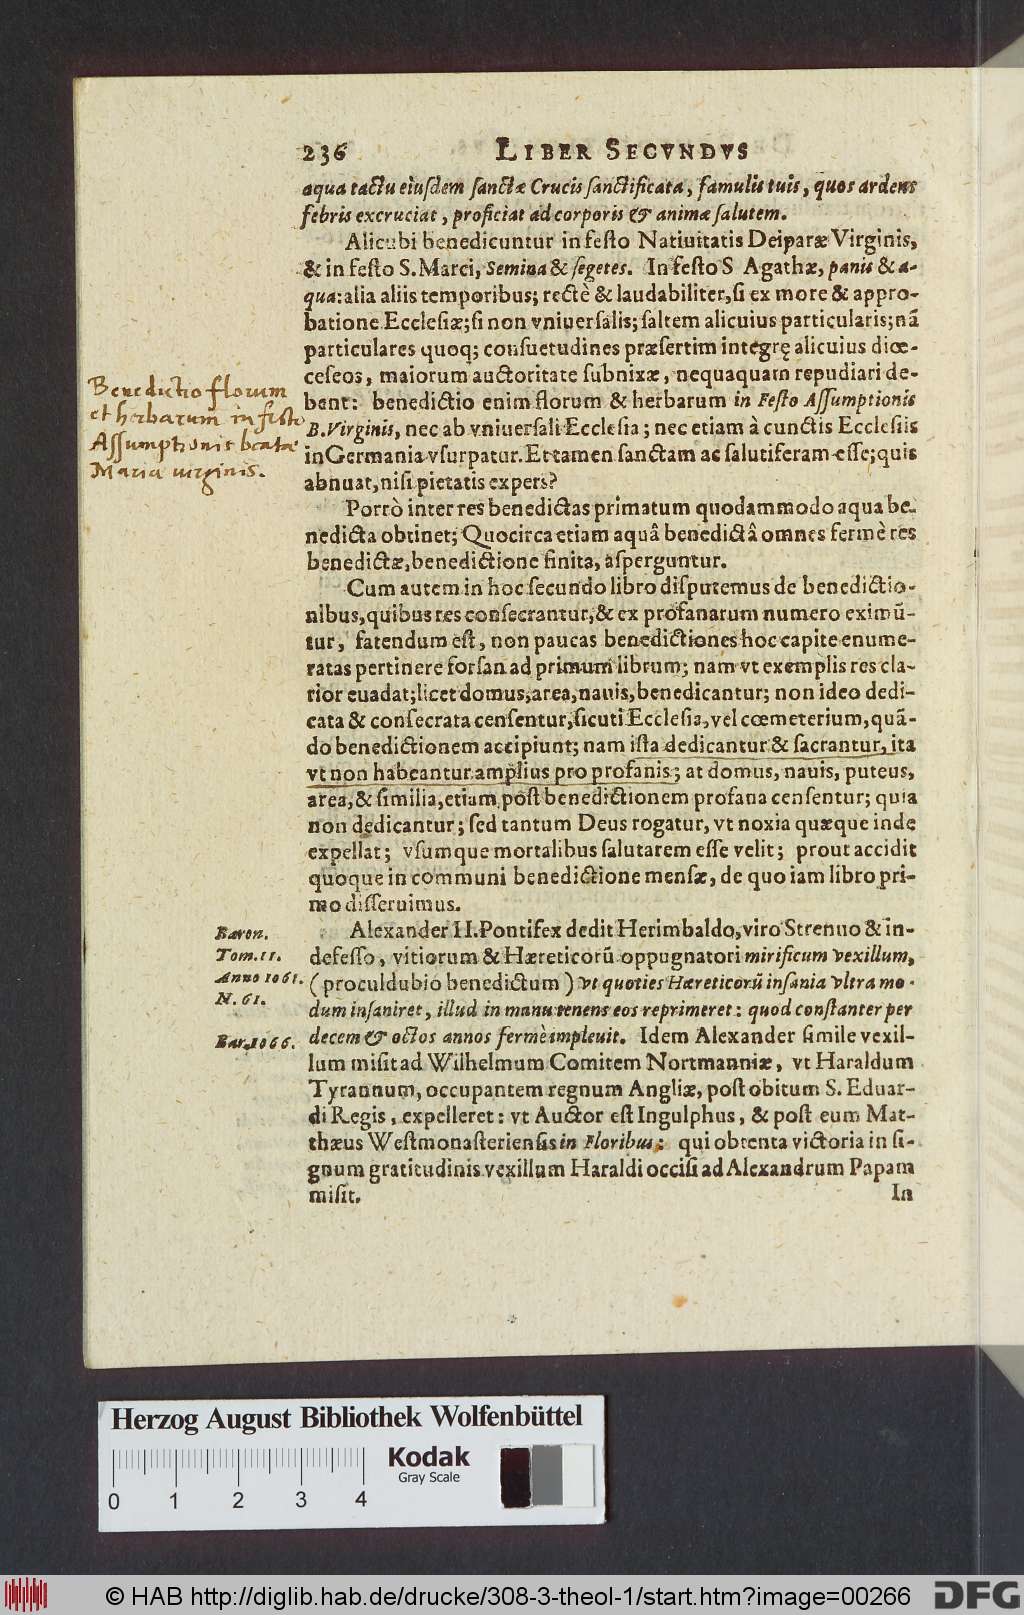 236 LIBER SECVNDVS
aqua tactu eiuſdem ſanctæ Crucis ſanctificata, famulis tuis, quos ardens
febris excruciat, proficiat ad corporis & animæ ſalutem.
Alicubi benedicuntur in feſto Natiuitatis Deiparæ Virginis,
& in feſto S. Marci, Semina & ſegetes. In feſto S Agathæ, panis & a-
qua: alia aliis temporibus; rectè & laudabiliter, ſi ex more & appro-
batione Eccleſiæ; ſi non vniuerſalis; ſaltem alicuius particularis; nã
particulares quoq; conſuetudines præſertim integrę alicuius diœ-
ceſeos, maiorum auctoritate ſubnixæ, nequaquam repudiari de-
bent: benedictio enim florum & herbarum in Feſto Aſſumptionis
B. Virginis, nec ab vniuerſali Eccleſia; nec etiam à cunctis Eccleſiis
in Germania vſurpatur. Et tamen ſanctam ac ſalutiferam eſſe; quis
abnuat, niſi pietatis expers?
Benedictio florum
et herbarum in festo
Aſſumptionis beatæ
Mariæ virginis.
Porrò inter res benedictas primatum quodammodo aqua be-
nedicta obtinet; Quocirca etiam aquâ benedictâ omnes fermè res
benedictæ, benedictione finita, aſperguntur.
Cum autem in hoc ſecundo libro diſputemus de benedictio-
nibus, quibus res conſecrantur, & ex profanarum numero eximũ-
tur, fatendum eſt, non paucas benedictiones hoc capite enume-
ratas pertinere forſan ad primum librum; nam vt exemplis res cla-
rior euadat; licet domus, area, nauis, benedicantur; non ideo dedi-
cata & conſecrata cenſentur, ſicuti Eccleſia, vel cœmeterium, quã-
do benedictionem accipiunt; nam iſta dedicantur & ſacrantur, ita
vt non habeantur amplius pro profanis; at domus, nauis, puteus,
area, & ſimilia, etiam poſt benedictionem profana cenſentur; quia
non dedicantur; ſed tantum Deus rogatur, vt noxia quæque inde
expellat; vſumque mortalibus ſalutarem eſſe velit; prout accidit
quoque in communi benedictione menſæ, de quo iam libro pri-
mo diſſeruimus.
Baron.
Tom. 11.
Anno 1061.
N. 61.
Bar. 1066.
Alexander II. Pontifex dedit Herimbaldo, viro Strenuo & in-
defeſſo, vitiorum & Hæreticorũ oppugnatori mirificum vexillum,
(proculdubio benedictum) vt quoties Hæreticorũ inſania vltra mo-
dum inſaniret, illud in manu tenens eos reprimeret: quod conſtanter per
decem & octos annos fermè impleuit. Idem Alexander ſimile vexil-
lum miſit ad Wilhelmum Comitem Nortmanniæ, vt Haraldum
Tyrannum, occupantem regnum Angliæ, poſt obitum S. Eduar-
di Regis, expelleret: vt Auctor eſt Ingulphus, & poſt eum Mat-
thæus Weſtmonaſterienſis in Floribus; qui obtenta victoria in ſi-
gnum gratitudinis vexillum Haraldi occiſi ad Alexandrum Papam
miſit.
In
Herzog August Bibliothek Wolfenbüttel
Kodak
Gray Scale
0 1 2 3 4
© HAB http://diglib.hab.de/drucke/308-3-theol-1/start.htm?image=00266
DFG